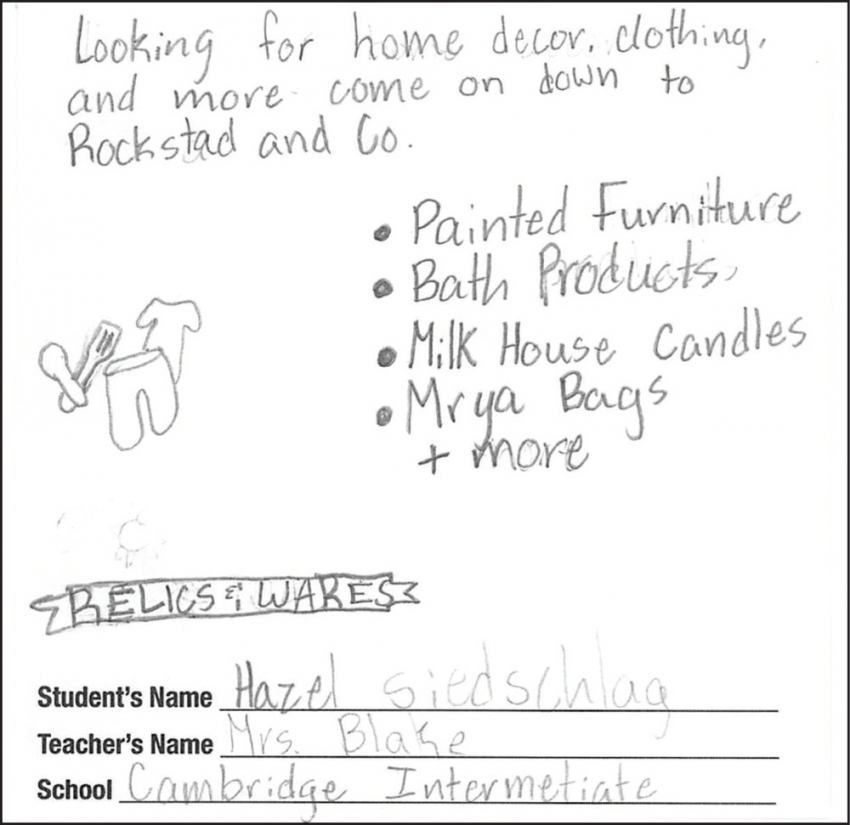 Looking for home decor. clothing,
and more come on down to
Rockstad and Co.
• Painted Furniture
• Bath Products,
• Milk House Candles
• Mrya Bags
+ more
RELICS & WARES
Student's Name Hazel Siedschlag
Teacher's Name Mrs. Blake
School Cambridge Intermetiate